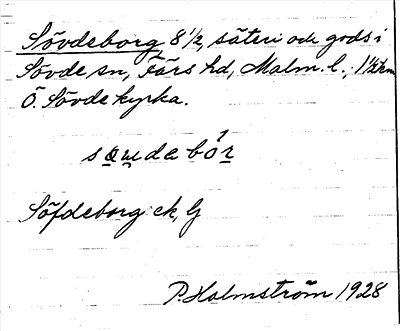 Sövdeborg, 8 1/2, säteri och gods i
Sövde sn, Färs hd, Malm. l.; 1 1/2 km
Ö. Sövde kyrka.
Söfdeborg: ek, Gj
P. Holmström 1928